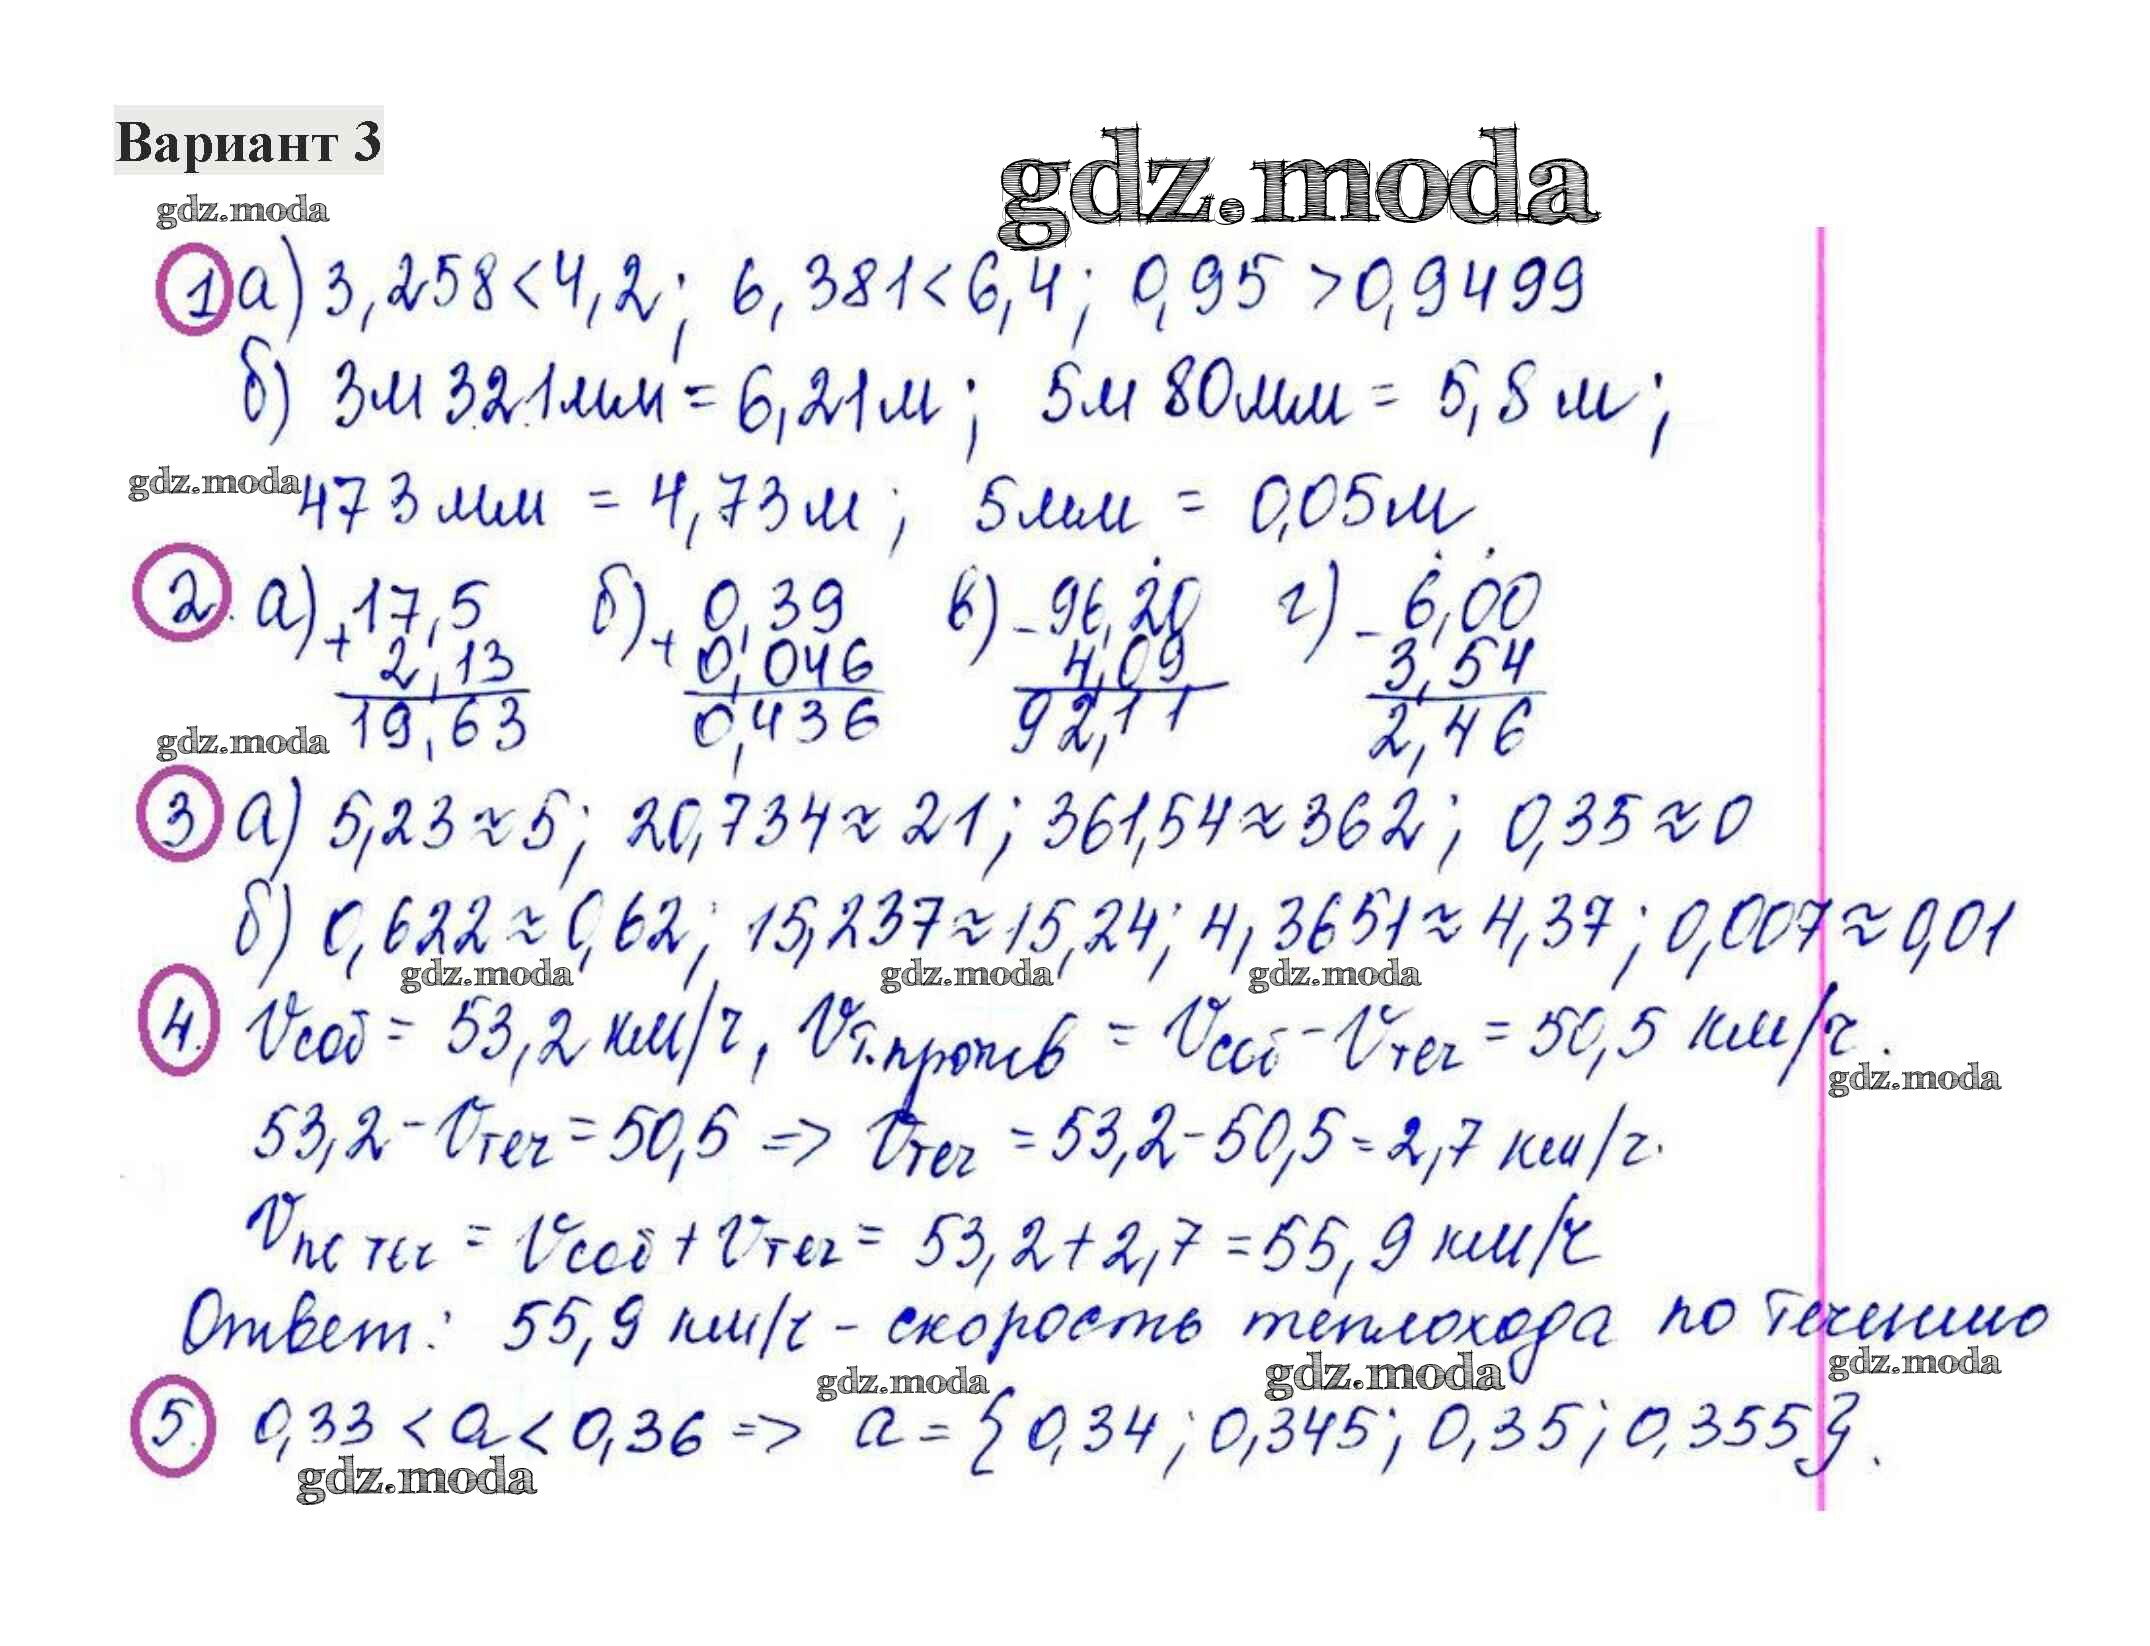 Вариант 3
gdz.moda
gdz.moda
1 а) 3,258 < 4,2; 6,381 < 6,4; 0,95 > 0,9499
б) 3м 321мм = 6,21м; 5м 80мм = 5,8 м;
gdz.moda
473 мм = 4,73 м; 5мм = 0,05м
2. а) + 17,5 б) + 0,39 в) - 96,20 г) - 6,00
2,13 0,046 4,09 3,54
19,63 0,436 92,11 2,46
gdz.moda
3 а) 5,23 ≈ 5; 20,734 ≈ 21; 361,54 ≈ 362; 0,35 ≈ 0
б) 0,622 ≈ 0,62; 15,237 ≈ 15,24; 4,3651 ≈ 4,37; 0,007 ≈ 0,01
gdz.moda gdz.moda gdz.moda
4. Vсоб = 53,2 км/ч, Vт.против = Vсоб - Vтеч = 50,5 км/ч.
gdz.moda
53,2 - Vтеч = 50,5 => Vтеч = 53,2 - 50,5 = 2,7 км/ч.
Vпо теч = Vсоб + Vтеч = 53,2 + 2,7 = 55,9 км/ч
Ответ: 55,9 км/ч - скорость теплохода по течению
gdz.moda gdz.moda gdz.moda
5. 0,33 < a < 0,36 => a = {0,34; 0,345; 0,35; 0,355}.
gdz.moda